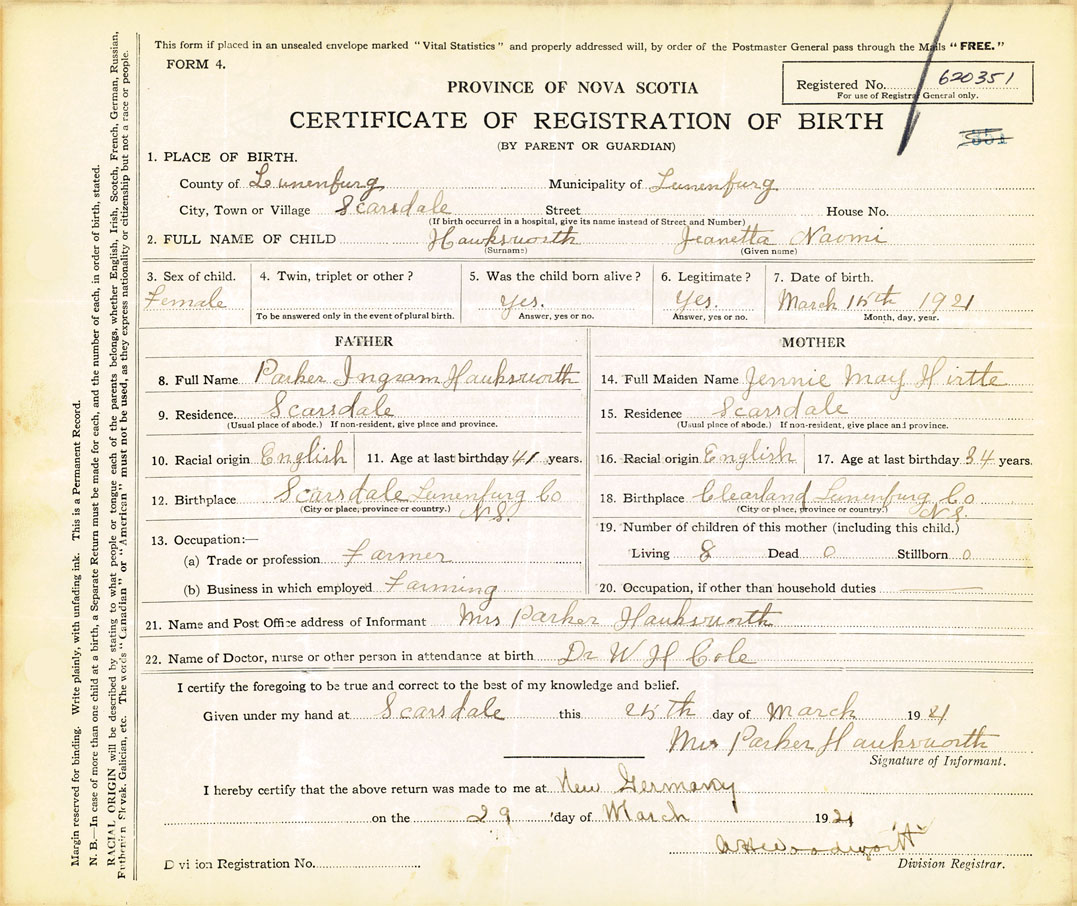 This form if placed in an unsealed envelope marked "Vital Statistics" and properly addressed will, by order of the Postmaster General pass through the Mails "FREE."
FORM 4.
Registered No. 620351
For use of Registrar General only.
PROVINCE OF NOVA SCOTIA
CERTIFICATE OF REGISTRATION OF BIRTH
(BY PARENT OR GUARDIAN)
1. PLACE OF BIRTH.
County of Lunenburg Municipality of Lunenburg
City, Town or Village Scarsdale Street House No.
(If birth occurred in a hospital, give its name instead of Street and Number)
2. FULL NAME OF CHILD Hawksworth Jeanetta Naomi
(Surname) (Given name)
3. Sex of child. 4. Twin, triplet or other? 5. Was the child born alive? 6. Legitimate? 7. Date of birth.
Female Yes. Yes. March 15th 1921
To be answered only in the event of plural birth. Answer, yes or no. Answer, yes or no. Month, day, year.
FATHER MOTHER
8. Full Name Parker Ingram Hawksworth 14. Full Maiden Name Jennie May Hirtle
9. Residence. Scarsdale 15. Residence Scarsdale
(Usual place of abode.) If non-resident, give place and province. (Usual place of abode.) If non-resident, give place and province.
10. Racial origin English 11. Age at last birthday 41 years. 16. Racial origin English 17. Age at last birthday 34 years.
12. Birthplace Scarsdale Lunenburg Co 18. Birthplace Clearland Lunenburg Co
(City or place, province or country.) N.S. (City or place, province or country.) N.S.
13. Occupation:— 19. Number of children of this mother (including this child.)
(a) Trade or profession Farmer Living 8 Dead 0 Stillborn 0
(b) Business in which employed Farming 20. Occupation, if other than household duties
21. Name and Post Office address of Informant Mrs Parker Hawksworth
22. Name of Doctor, nurse or other person in attendance at birth Dr W H Cole
I certify the foregoing to be true and correct to the best of my knowledge and belief.
Given under my hand at Scarsdale this 25th day of March 19
Mrs Parker Hawksworth
Signature of Informant.
I hereby certify that the above return was made to me at New Germany
on the 29 day of March 1921
Division Registrar.
Division Registration No.
Margin reserved for binding. Write plainly, with unfading ink. This is a Permanent Record.
N. B.—In case of more than one child at a birth, a Separate Return must be made for each, and the number of each, in order of birth, stated.
RACIAL ORIGIN will be described by stating to what people or tongue each of the parents belongs, whether English, Irish, Scotch, French, German, Russian,
Ruthenian, Slovak, Galician, etc. The words "Canadian" or "American" must not be used, as they express nationality or citizenship but not a race or people.